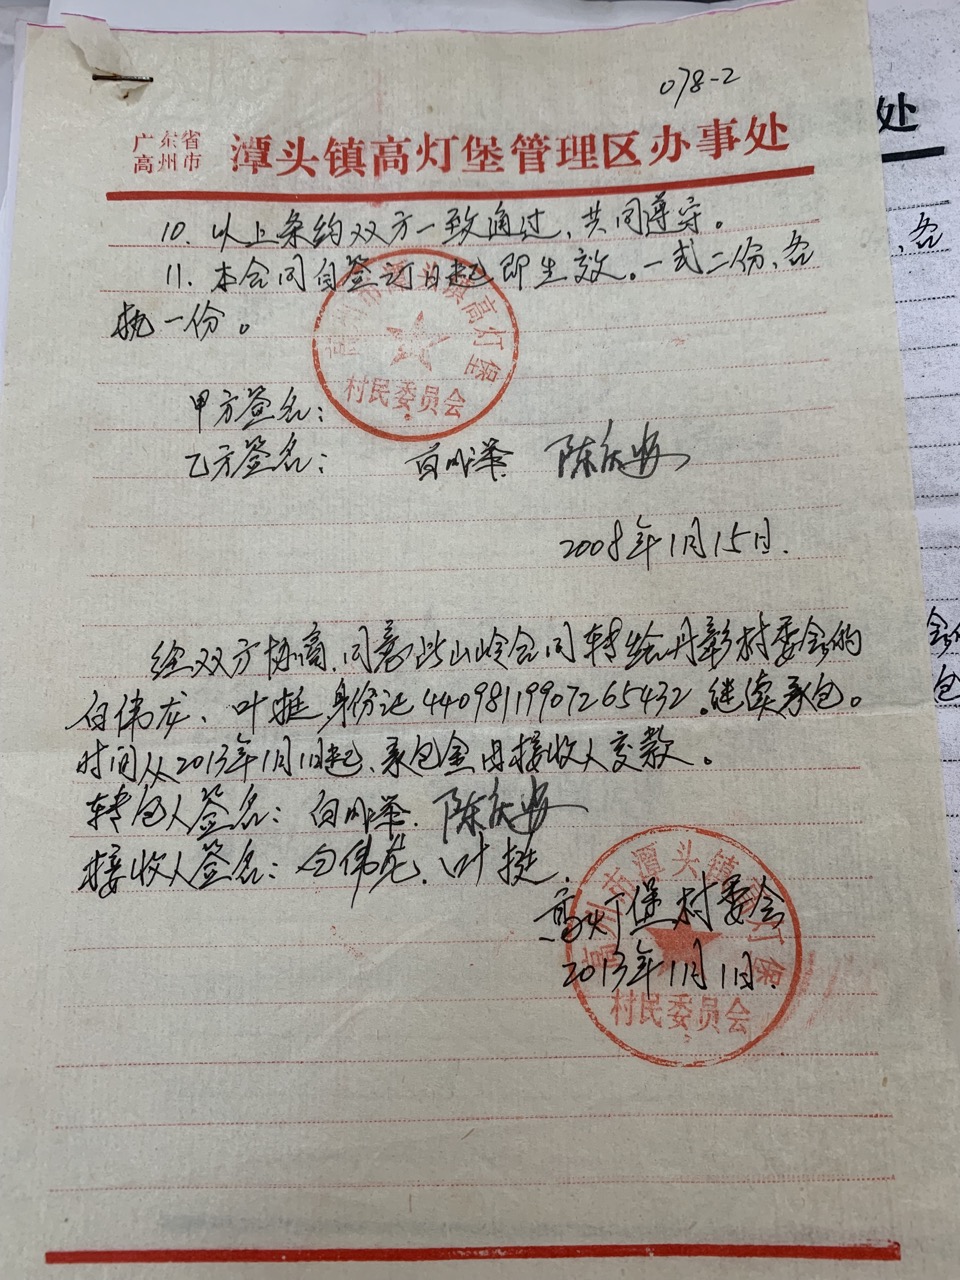 078-2
广东省
高州市
潭头镇高灯堡管理区办事处
10. 以上条约双方一致通过、共同遵守。
11. 本合同自签订日起即生效。一式二份、各
执一份。
高州市潭头镇高灯堡
村民委员会
甲方签名：
乙方签名： 陈庆安
2008年1月15日.
经双方协商、同意此山岭合同转给丹彰村委会的
白伟龙、叶挺 身份证44098119907265432. 继续承包。
时间从2013年1月1日起、承包金由接收人交款。
转包人签名： 陈庆安
接收人签名：白伟龙、叶挺.
高州市潭头镇高灯堡
高灯堡村委会
2013年1月1日.
村民委员会
处
、各
包